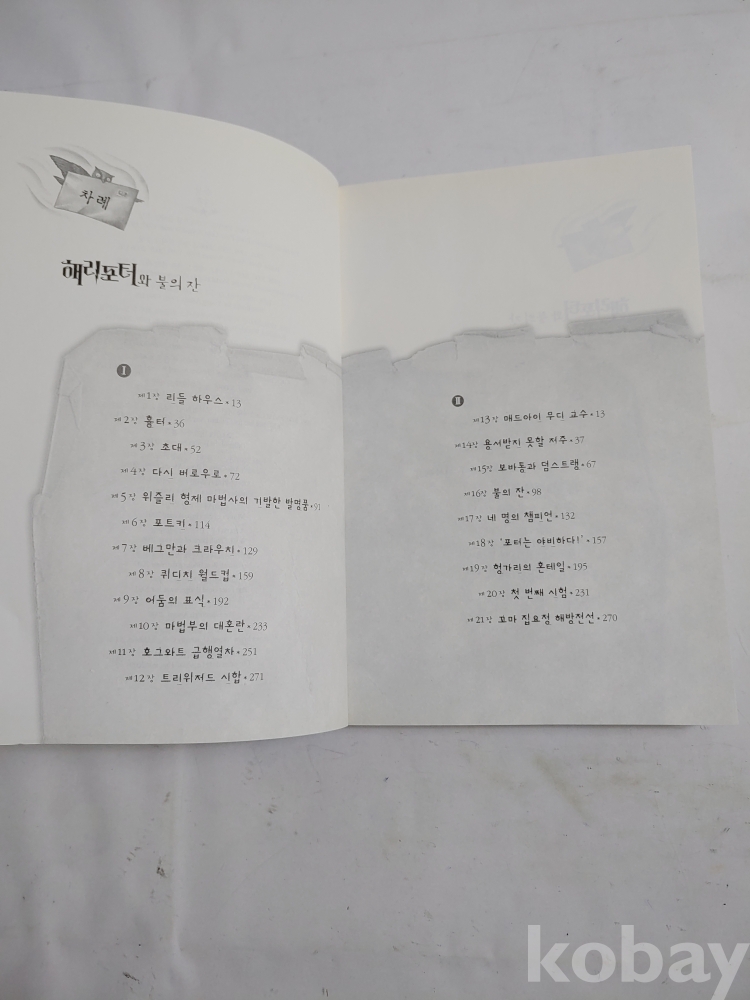 차례
해리포터와 불의 잔
I
제1장 리들 하우스 • 13
제2장 흉터 • 36
제3장 초대 • 52
제4장 다시 버로우로 • 72
제5장 위즐리 형제 마법사의 기발한 발명품 • 91
제6장 포트키 • 114
제7장 베그만과 크라우치 • 129
제8장 퀴디치 월드컵 • 159
제9장 어둠의 표식 • 192
제10장 마법부의 대혼란 • 233
제11장 호그와트 급행열차 • 251
제12장 트리위저드 시합 • 271
II
제13장 매드아이 무디 교수 • 13
제14장 용서받지 못할 저주 • 37
제15장 보바통과 덤스트랭 • 67
제16장 불의 잔 • 98
제17장 네 명의 챔피언 • 132
제18장 '포터는 야비하다!' • 157
제19장 헝가리의 혼테일 • 195
제20장 첫 번째 시험 • 231
제21장 꼬마 집요정 해방전선 • 270
kobay